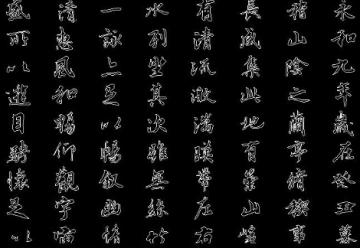 永和九年歲在癸丑暮
稽山陰之蘭亭脩禊事
長咸集此地有
有清流激湍暎帶左右
水列坐其次雖無絲竹
一詠亦足以暢敘幽情
清惠風和暢仰觀宇宙
盛所以遊目騁懷足以